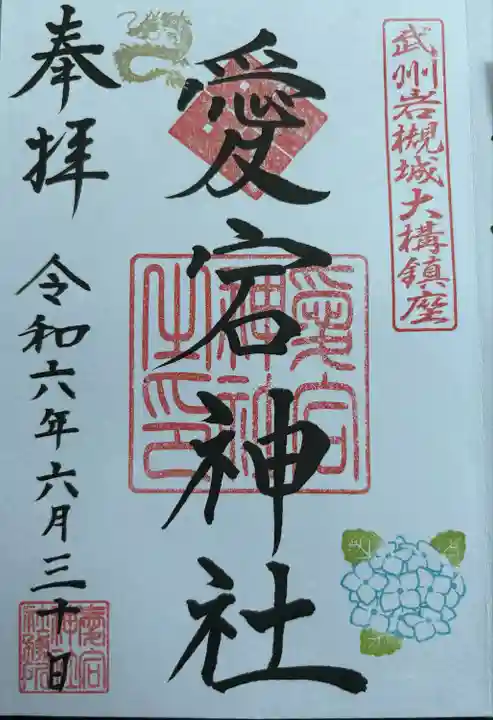 武州岩槻城大構鎮座
愛宕神社
奉拝
令和六年六月三十日
愛宕
神社
之印
愛宕
神社
社務所